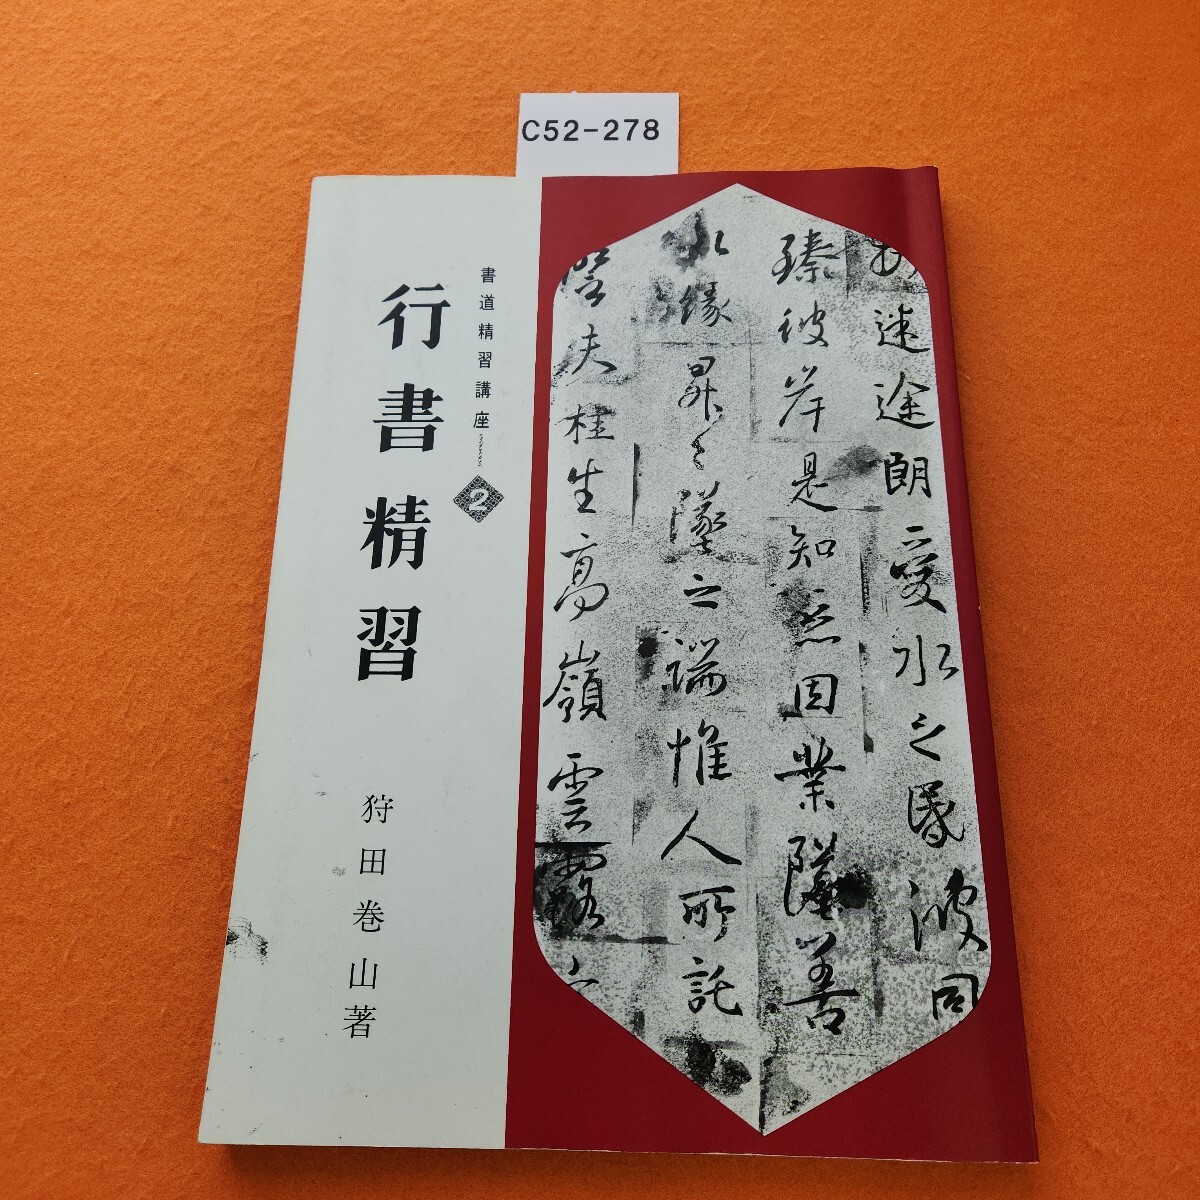 C52-278
書道精習講座
2
行書精習
狩田巻山著
迷途朗愛水之昏波同
臻彼岸是知惡因業墜善
以緣昇々墜之端惟人所託
譬夫桂生高嶺雲露